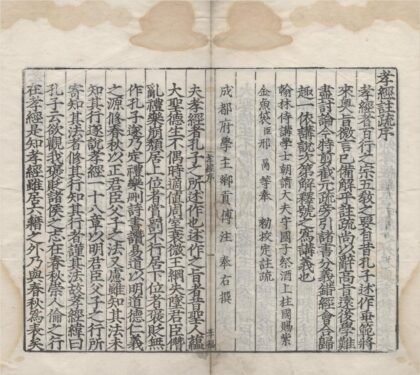 孝經註疏序
孝經者百行之宗五教之要自昔孔子述作垂範將
來奥旨微言已備解乎註疏尚以辭高旨遠後學難
盡討論今特剪截元疏旁引諸書分義錯經會合歸
趣一依講說次第解釋號之爲講義也
翰林侍講學士朝請大夫守國子祭酒上柱國賜紫
金魚袋臣邢昺等奉 勑校定註疏
成都府學主鄉貢傅注奉右撰
夫孝經者孔子之所述作也述作之旨者昔聖人蘊
大聖德生不偶時適值周室衰微王綱失墜君臣僭
亂禮樂崩頹居上位者賞罰不行居下位者褒貶無
作孔子遂乃定禮樂刪詩書讚易道以明道德仁義
之源修春秋以正君臣父子之法又慮雖知其法未
知其行遂說孝經一十八章以明君臣父子之行所
寄知其法者修其行知其行者謹其法故孝經緯曰
孔子云欲觀我褒貶諸侯之志在春秋崇人倫之行
在孝經是知孝經雖居六籍之外乃與春秋爲表矣